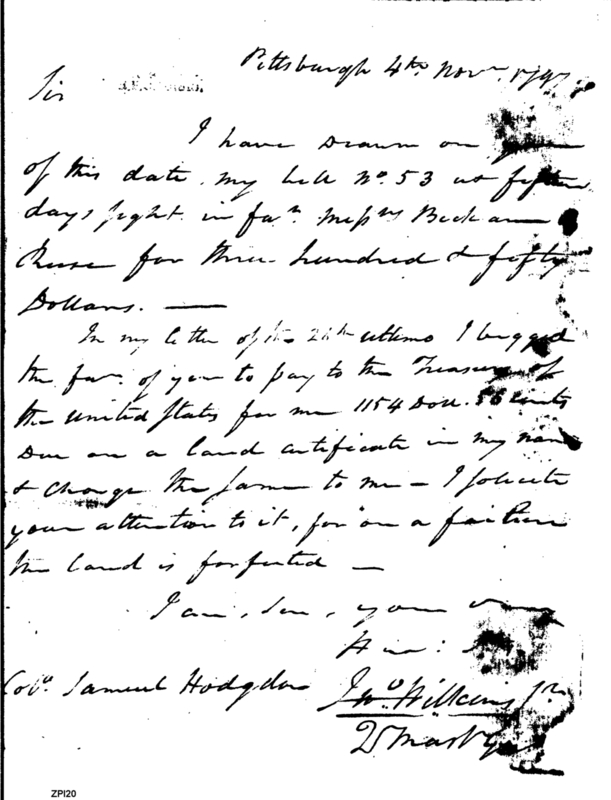 Pittsburgh 4th Novr. 1797
Sir
I have drawn on you
of this date my bill No. 53 at fifteen
days sight in favr. Messrs Beckam &
Reese for three hundred & fifty
Dollars. —
In my letter of the ultimo I begged
the favr. of you to pay to the Treasurer of
the United States for me 1154 Doll. 56 Cents
Due on a land certificate in my name
& charge the same to me – I solicite
your attention to it, for on a failure
the land is forfeited —
I am, Sir, your
Hum:
Colo. Samuel Hodgdon
Jno. Wilkins Jr.
QMastr Genl
ZPI20